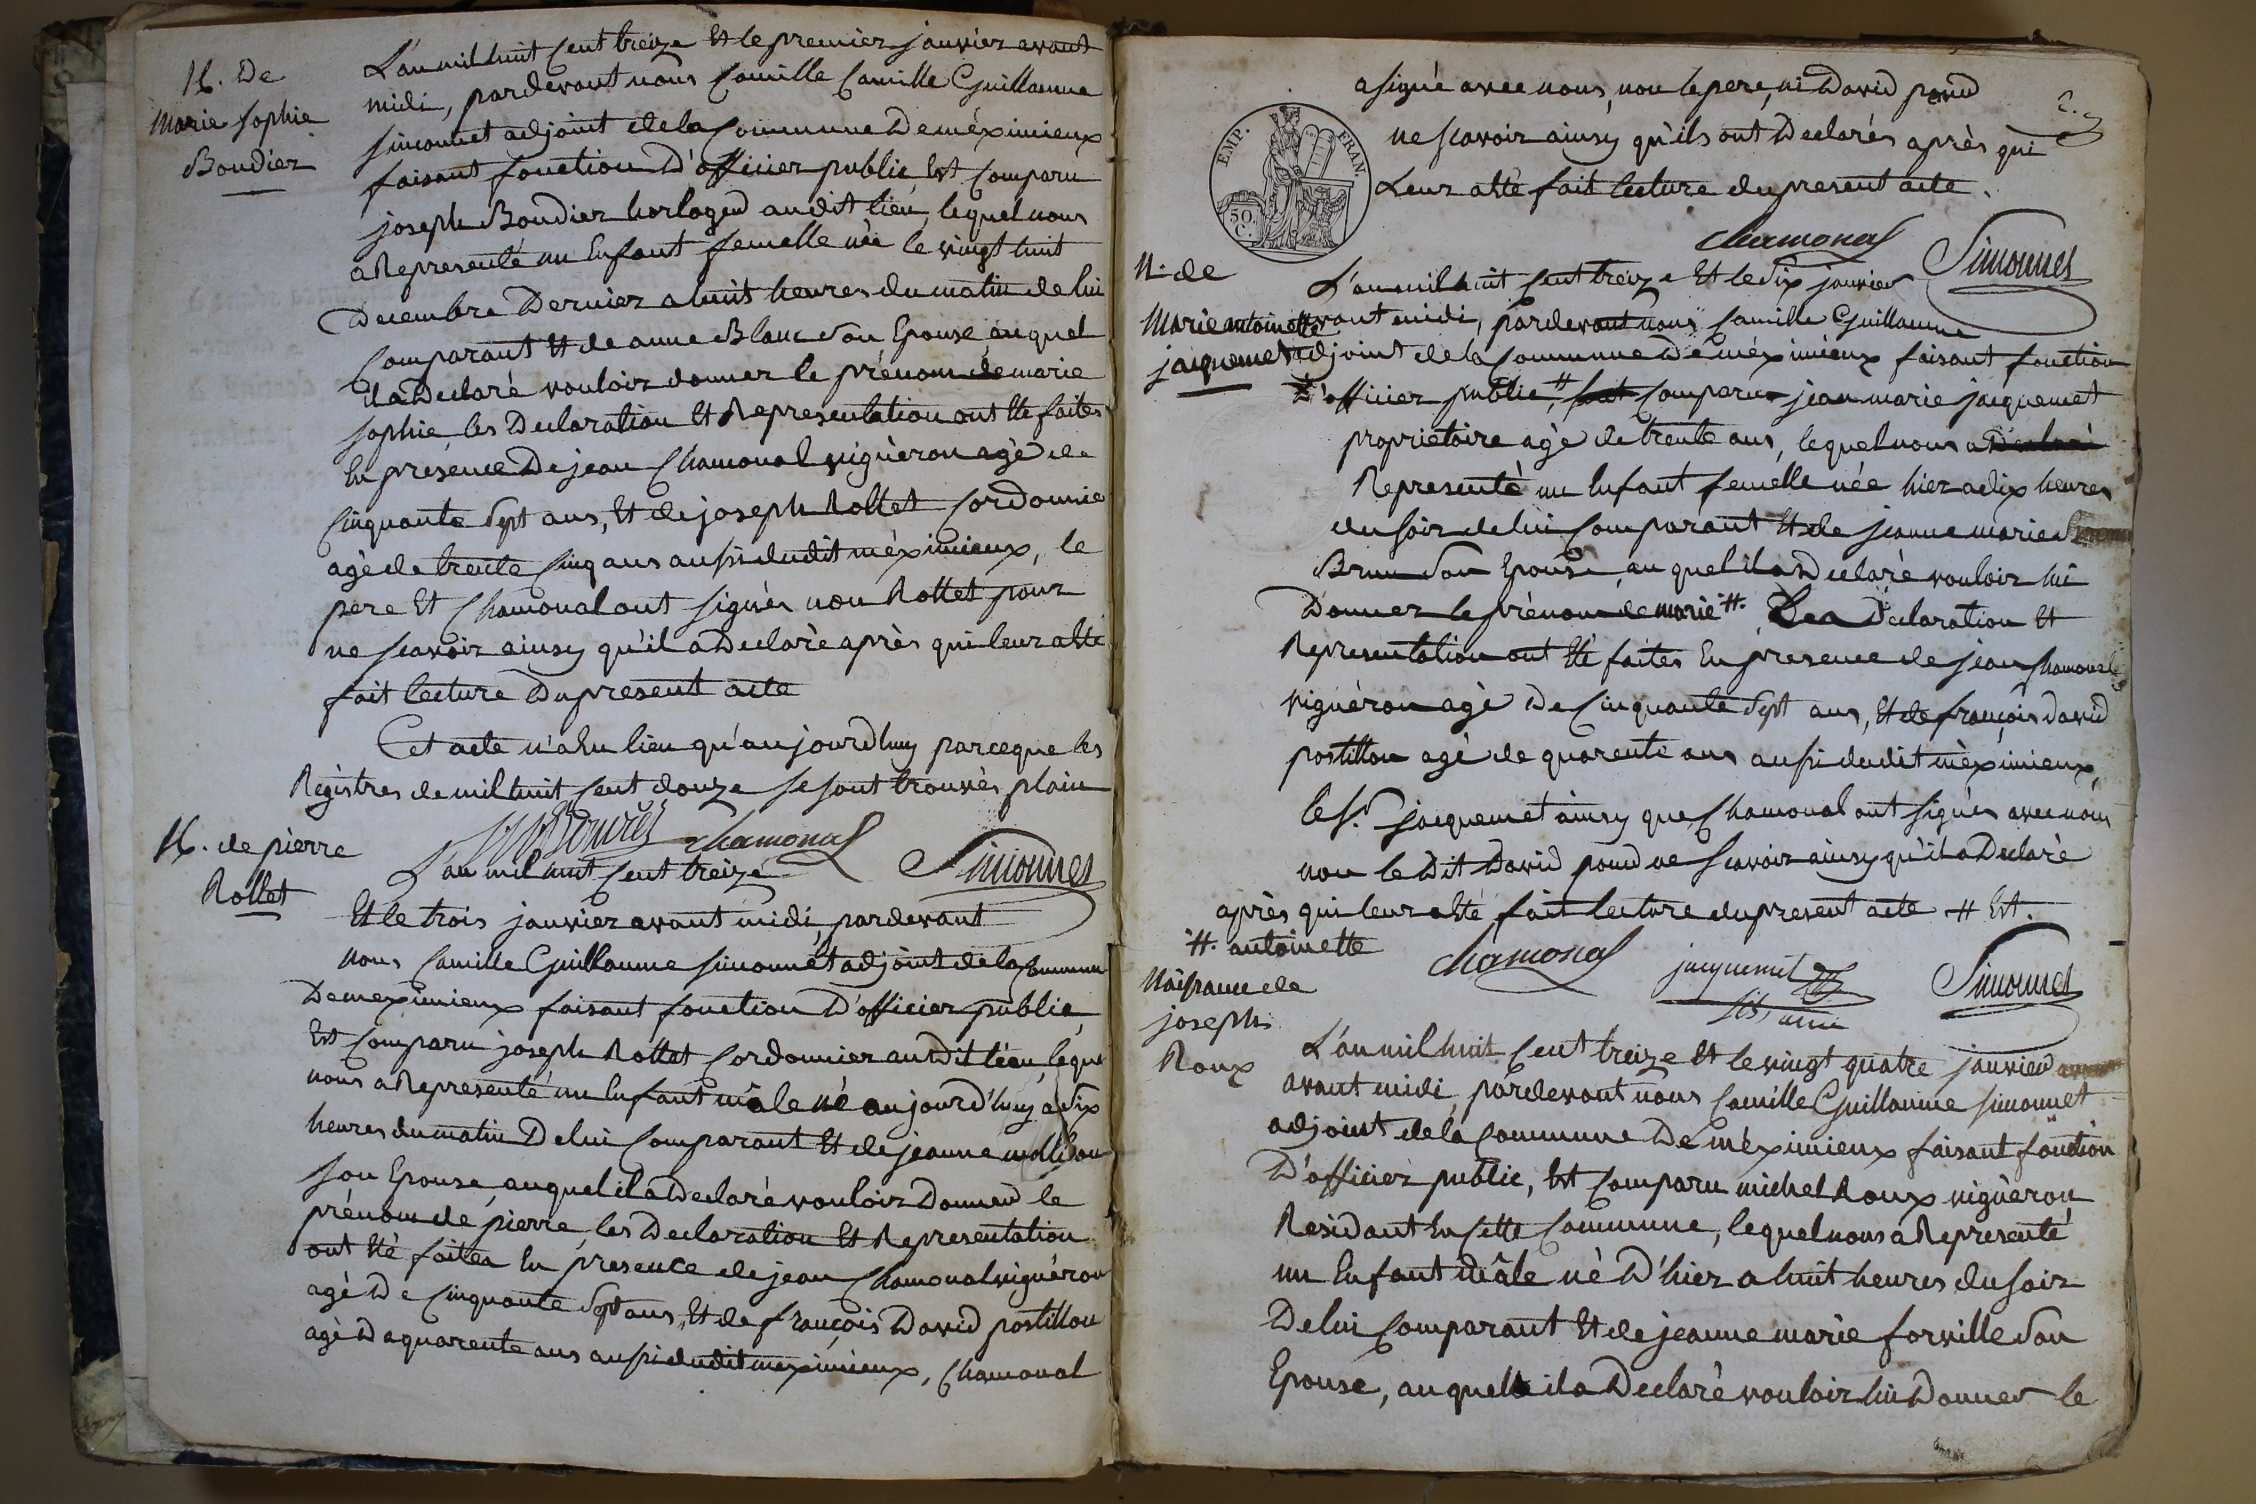 N. De
Marie Sophie
Boudier
L'an mil huit cent treize Et le premier janvier avant
midi, pardevant nous Camille Camille Guillaume
Simonnet adjoint de la Commune De méximieux
faisant fonction D'officier public Est Comparu
joseph Boudier horloger audit lieu, lequel nous
a Representé un Enfant femelle née le vingt huit
Decembre Dernier a huit heures du matin de lui
Comparant Et de anne Blanc Son Epouse auquel
il a Declaré vouloir donner le prénom de marie
sophie, les Declaration Et Representation ont Eté faites
En présence De jean Chamonal vigneron agé de
Cinquante Sept ans, Et de joseph Rollet Cordonnie
agé de trente Cinq ans aussi dudit méximieux, le
pere Et Chamonal ont signés non Rollet pour
ne scavoir ainsy qu'il a Declaré après qui leur a Eté
fait lecture Du present acte
Cet acte n'a Eu lieu qu'aujourdhuy parceque les
Régistres de mil huit cent douze se sont trouvés plain
chamonal
Simonnet
N. de pierre
Rollet
L'an mil huit Cent treize
Et le trois janvier avant midi, pardevant
nous Camille Guillaume Simonnet adjoint de la Commune
De meximieux faisant fonction D'officier public,
Est Comparu joseph Rollet Cordonnier audit lieu, lequel
nous a Representé un Enfant mâle né aujourd'huy a dix
heures du matin De lui Comparant Et de jeanne
son Epouse, auquel il a Declaré vouloir Donner le
prénom de pierre, les Declaration Et Representation
ont Eté faites En présence de jean Chamonal vigneron
agé De Cinquante Sept ans, Et de françois David postillon
agé De quarente ans aussi dudit meximieux, Chamonal
a signé avec nous, non le pere, ni David pour
ne scavoir ainsy qu'ils ont Declarés après qui
Leur a Eté fait lecture du present acte.
EMP. FRAN.
50 C.
chamonal
Simonnet
N. de
Marie antoinette
jacquemet
L'an mil huit Cent treize Et le Six janvier
avant midi, pardevant nous Camille Guillaume
adjoint de la Commune De méximieux faisant fonction
D'officier public, # Comparu jean marie jacquemet
proprietoire agé de trente ans, lequel nous a Declaré
Representé un Enfant femelle née hier a dix heures
du soir de lui Comparant Et de jeanne marie
Brun Son Epouse, auquel il a Declaré vouloir lui
Donner le prénom de marie #. Les Declaration Et
Representation ont Eté faites En presence de jean Chamonal
vigneron agé De Cinquante Sept ans, Et de françois david
postillon agé de quarente ans aussi dudit méximieux,
le Sr. jacquemet ainsy que Chamonal ont signés avec nous
non le Dit David pour ne scavoir ainsy qu'il a Declaré
après qui leur a Eté fait lecture du present acte # Est.
#. antoinette
chamonal
jacquemet
Simonnet
Naissance de
joseph
Roux
L'an mil huit Cent treize Et le vingt quatre janvier
avant midi, pardevant nous Camille Guillaume Simonnet
adjoint de la Commune De méximieux faisant fonction
D'officier public, Est Comparu michel Roux vigneron
Residant En Cette Commune, lequel nous a Representé
un Enfant mâle né D'hier a huit heures du soir
De lui Comparant Et de jeanne marie forville Son
Epouse, auquel il a Declaré vouloir lui Donner le